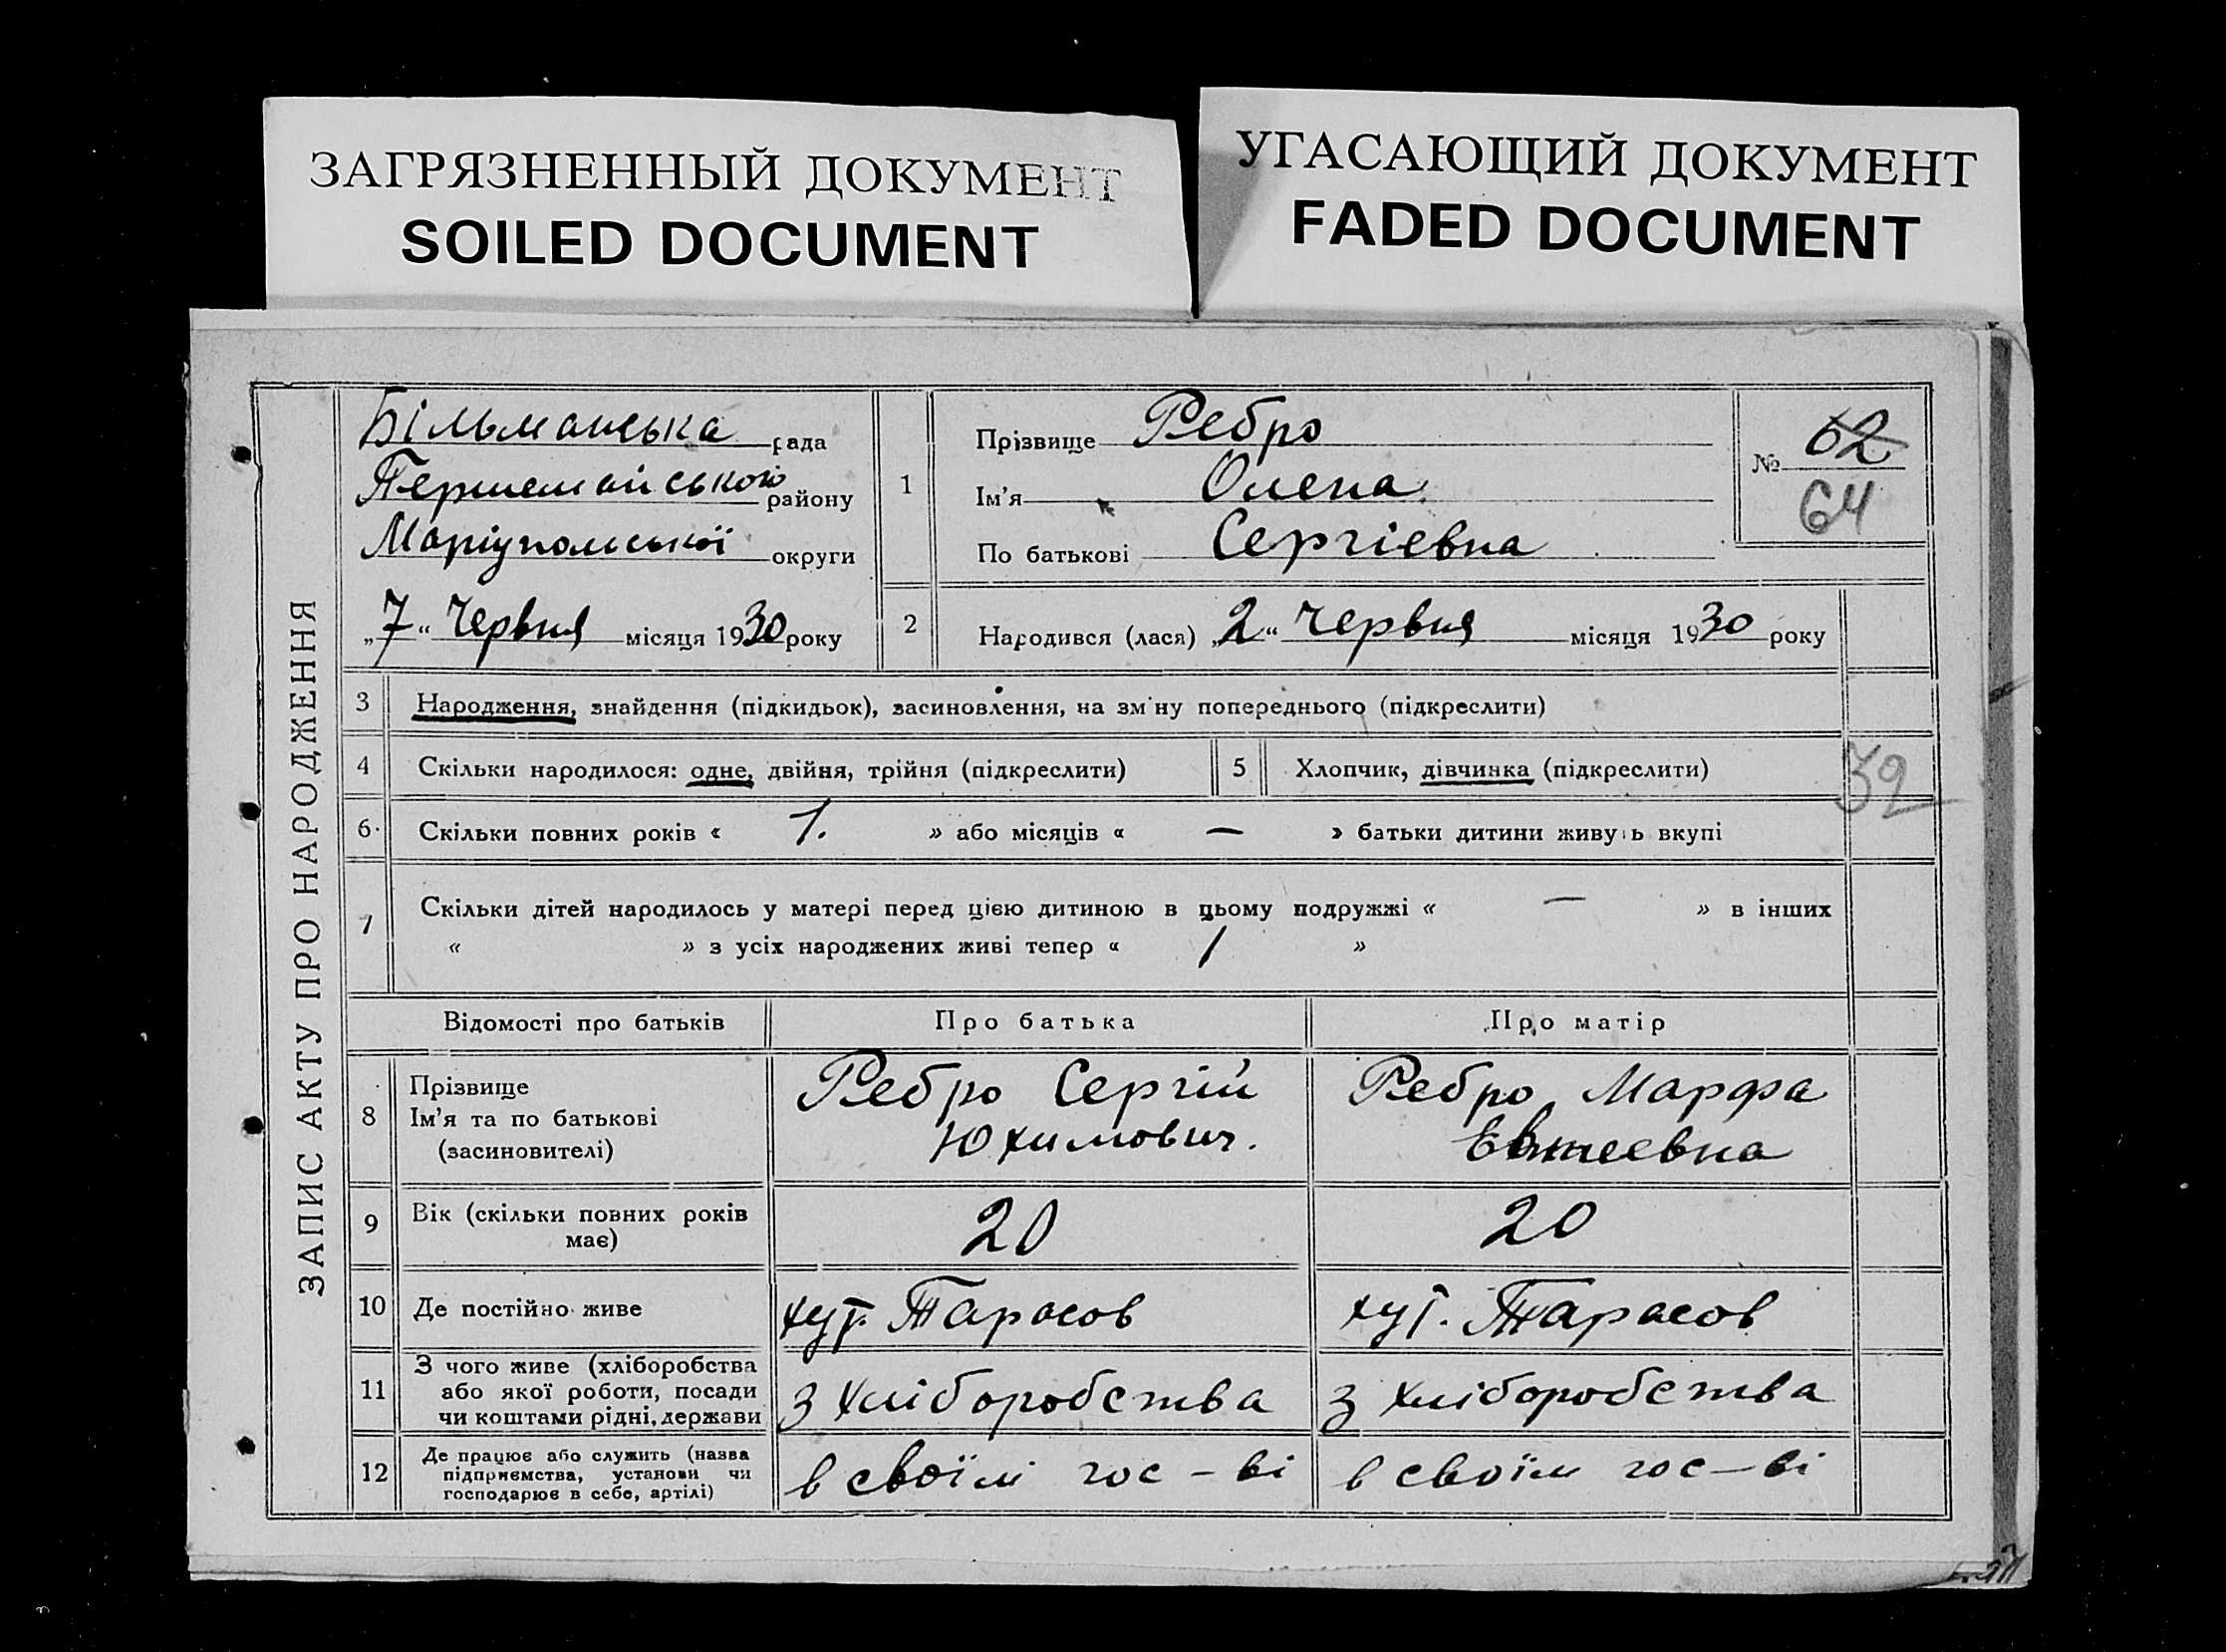 ЗАГРЯЗНЕННЫЙ ДОКУМЕНТ
SOILED DOCUMENT
УГАСАЮЩИЙ ДОКУМЕНТ
FADED DOCUMENT
ЗАПИС АКТУ ПРО НАРОДЖЕННЯ
Більманська рада
Першемайського району
Маріупольської округи
„7“ Червня місяця 1930 року
1
Прізвище Ребро
Ім'я Олена
По батькові Сергієвна
№ 62
64
2 Народився (лася) „2“ Червня місяця 1930 року
3 Народження, знайдення (підкидьок), засиновлення, на зм ну попереднього (підкреслити)
4 Скільки народилося: одне, двійня, трійня (підкреслити)
5 Хлопчик, дівчинка (підкреслити)
39
6. Скільки повних років « 1. » або місяців « — » батьки дитини живуть вкупі
7 Скільки дітей народилось у матері перед цією дитиною в цьому подружжі « — » в інших
« » з усіх народжених живі тепер « 1 »
Відомості про батьків Про батька Про матір
8
Прізвище
Ім'я та по батькові
(засиновителі)
Ребро Сергій
Юхимович.
Ребро Марфа
Евтеевна
9 Вік (скільки повних років
має)
20 20
10 Де постійно живе хут. Тарасов хут. Тарасов
11 З чого живе (хліборобства
або якої роботи, посади
чи коштами рідні, держави
з хліборобства з хліборобства
12 Де працює або служить (назва
підприємства, установи чи
господарює в себе, артілі)
в своїм гос-ві в своїм гос-ві